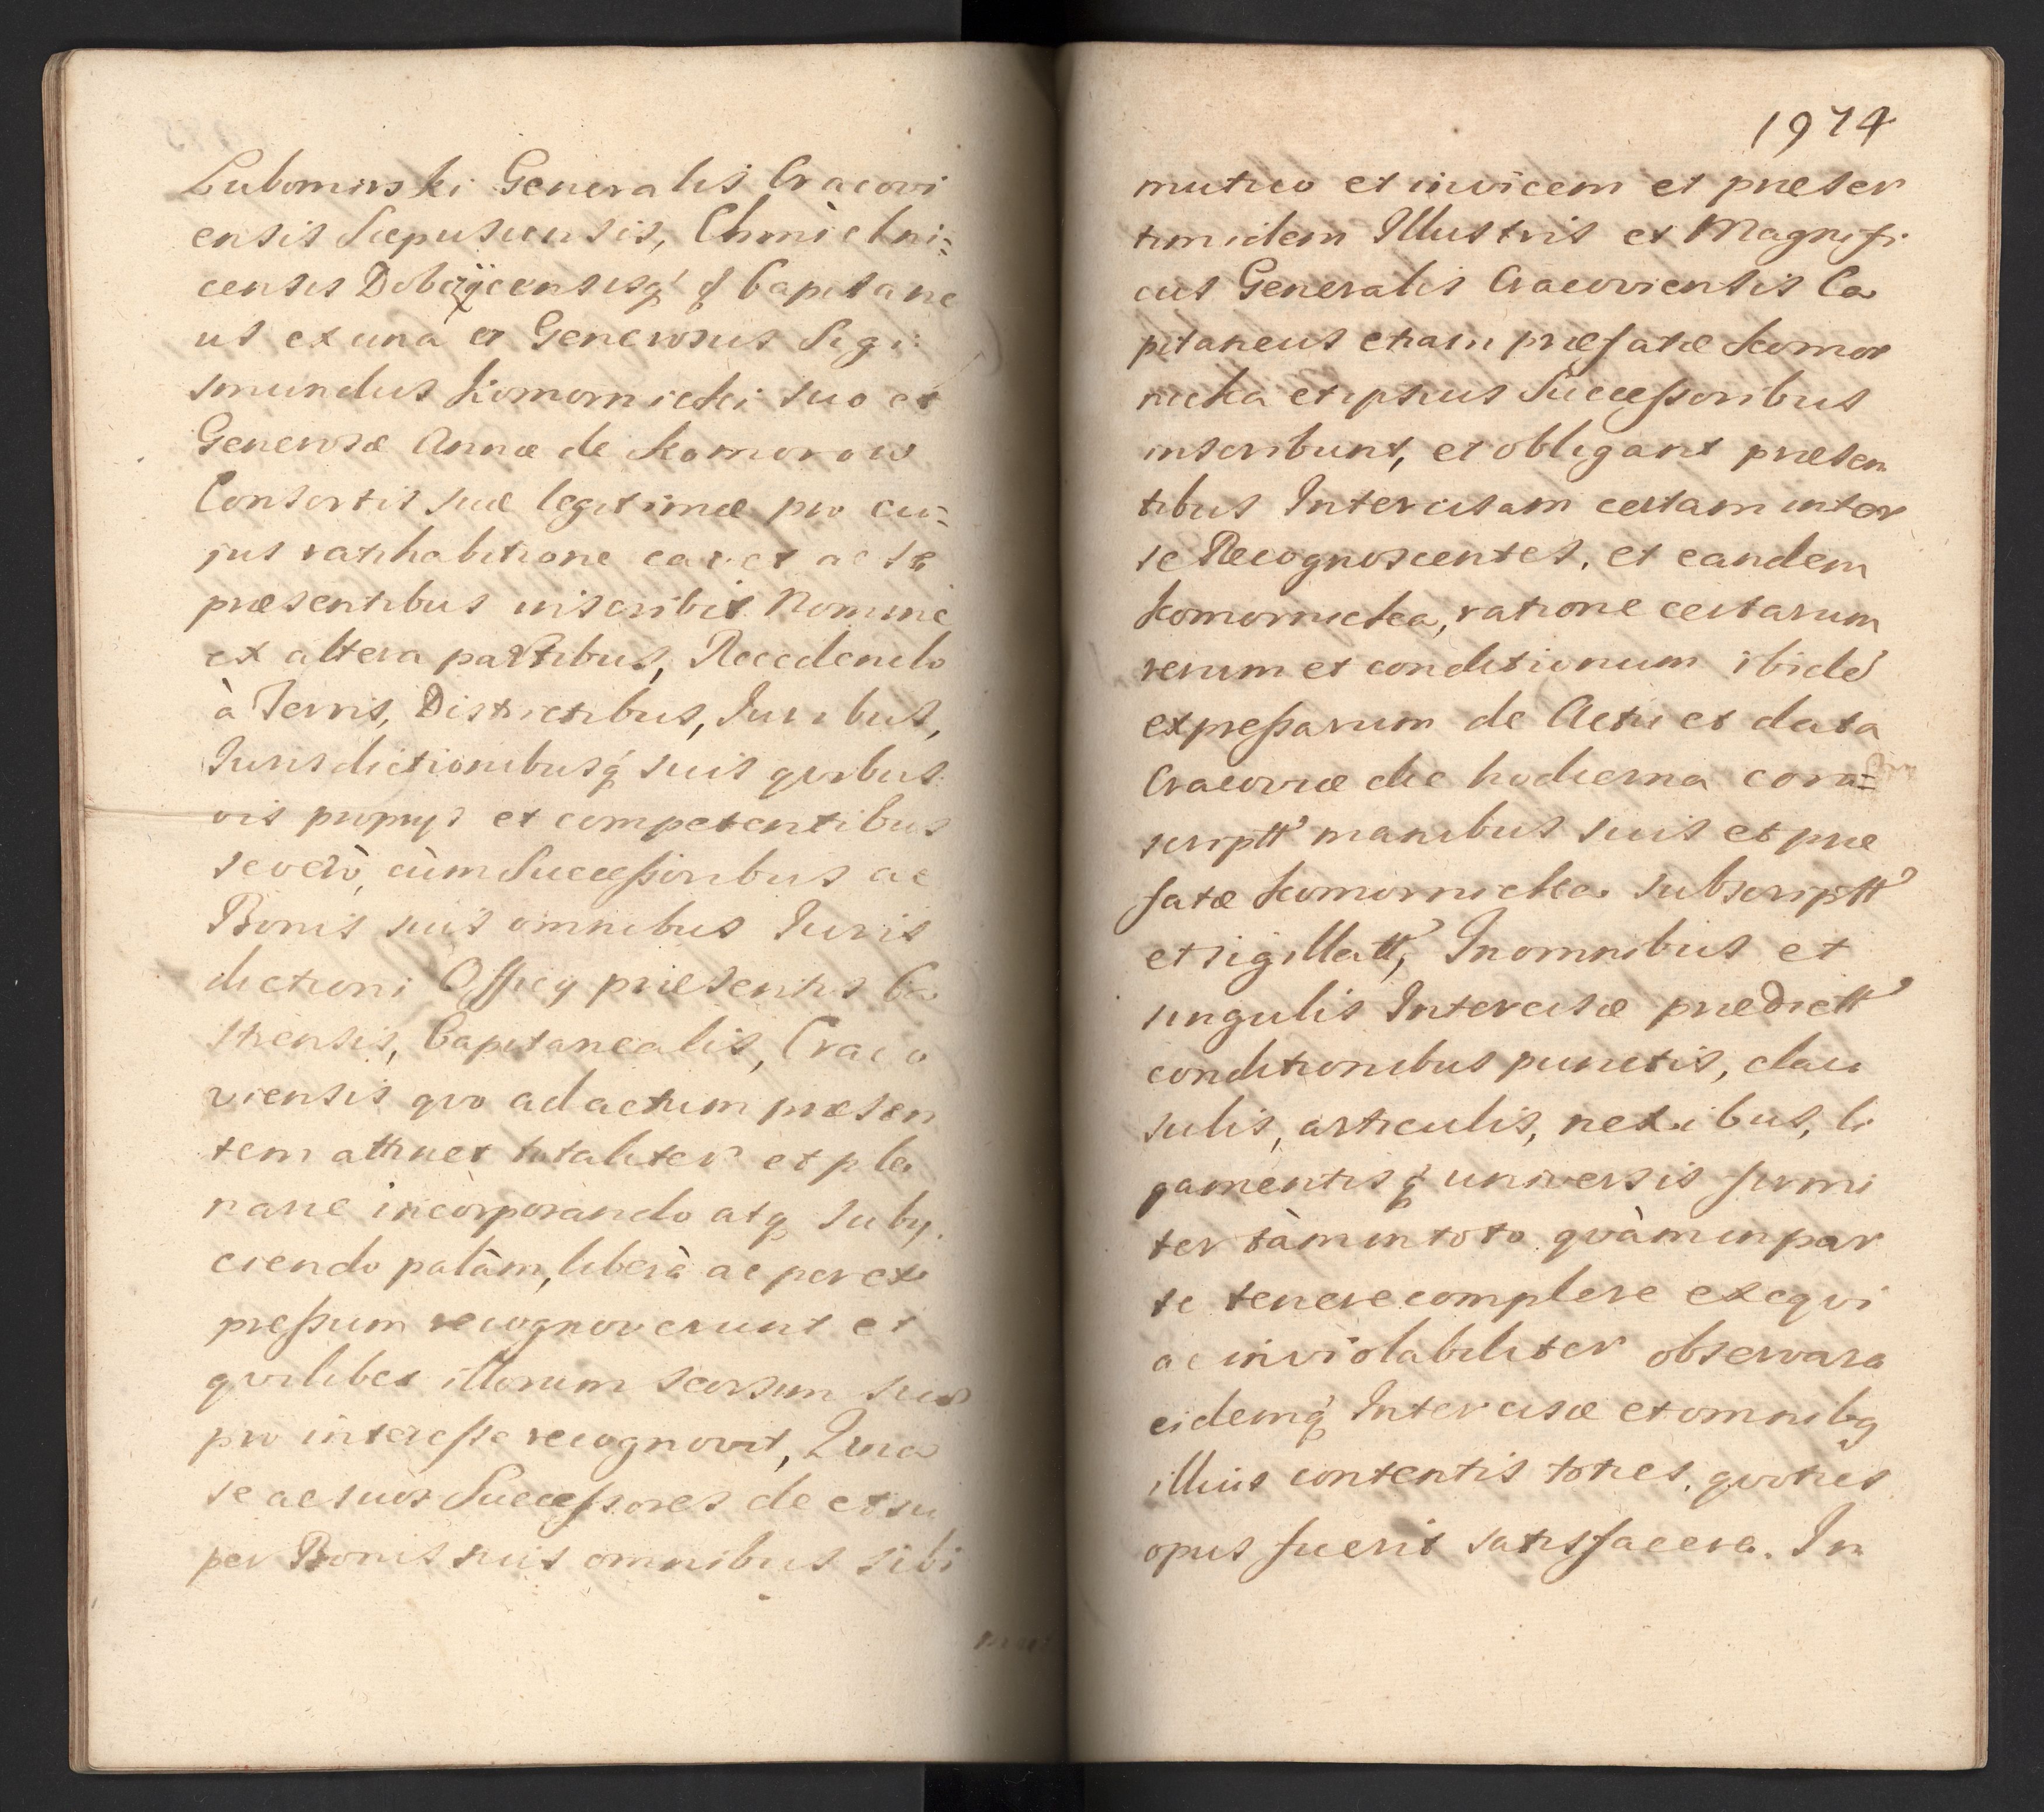 Lubomirski Generalis Cracovi
ensis Scepusiensis, Chmielni=
censis Dobczÿcensisq́ & Capitane
us ex una et Generosus Sigi:
smundus Komornicki suo et
Generosæ Annæ de Komorow
Consortis suæ legitimæ pro cu=
jus ratihabitione cavet ac se
præsentibus inscribit Nomine
ex altera partibus, Recedendo
à Terris, Districtibus, Juribus,
Jurisdictionibusq́ suis qvibus
vis proprys et competentibus
se verò, cùm Successoribus ac
Bonis suis omnibus Juris
dictioni Officy præsentis Ca
strensis, Capitanealis, Craco
viensis qvo ad actum præsen
tem attinet totaliter et ple
narie incorporando atq suby
ciendo palàm, liberè ac per ex
pressum recognoverunt et
qvilibet illorum seorsum sua
pro interesse recognovit, Quia
se ac suos Successores de et su
per Bonis suis omnibus sibi
1974
mutuo et invicem et præser
tim idem Illustris et Magnifi
cus Generalis Cracoviensis Ca
pitaneus etiam præfatæ Komor
nicka et ipsius Successoribus
inscribunt, et obligant præsen
tibus Intercisam certam inter
se Recognoscentes, et eandem
Komornicka, ratione certarum
rerum et conditionum ibidē
expressarum de Actu et data
Cracoviæ die hodierna con=
scriptt' manibus suis et præ
fatæ Komornicka subscriptt'
et sigillatt', In omnibus et
singulis Intercisæ prædictt'
conditionibus punctis, clau
sulis, articulis, nexibus, li
gamentisq́ universis firmi
ter tàm in toto qvàm in par
te tenere complere exeqvi
ac inviolabiliter observare
eidemq́ Intercisæ et omnibq
illius contentis toties, qvoties
opus fuerit satisfacere. In